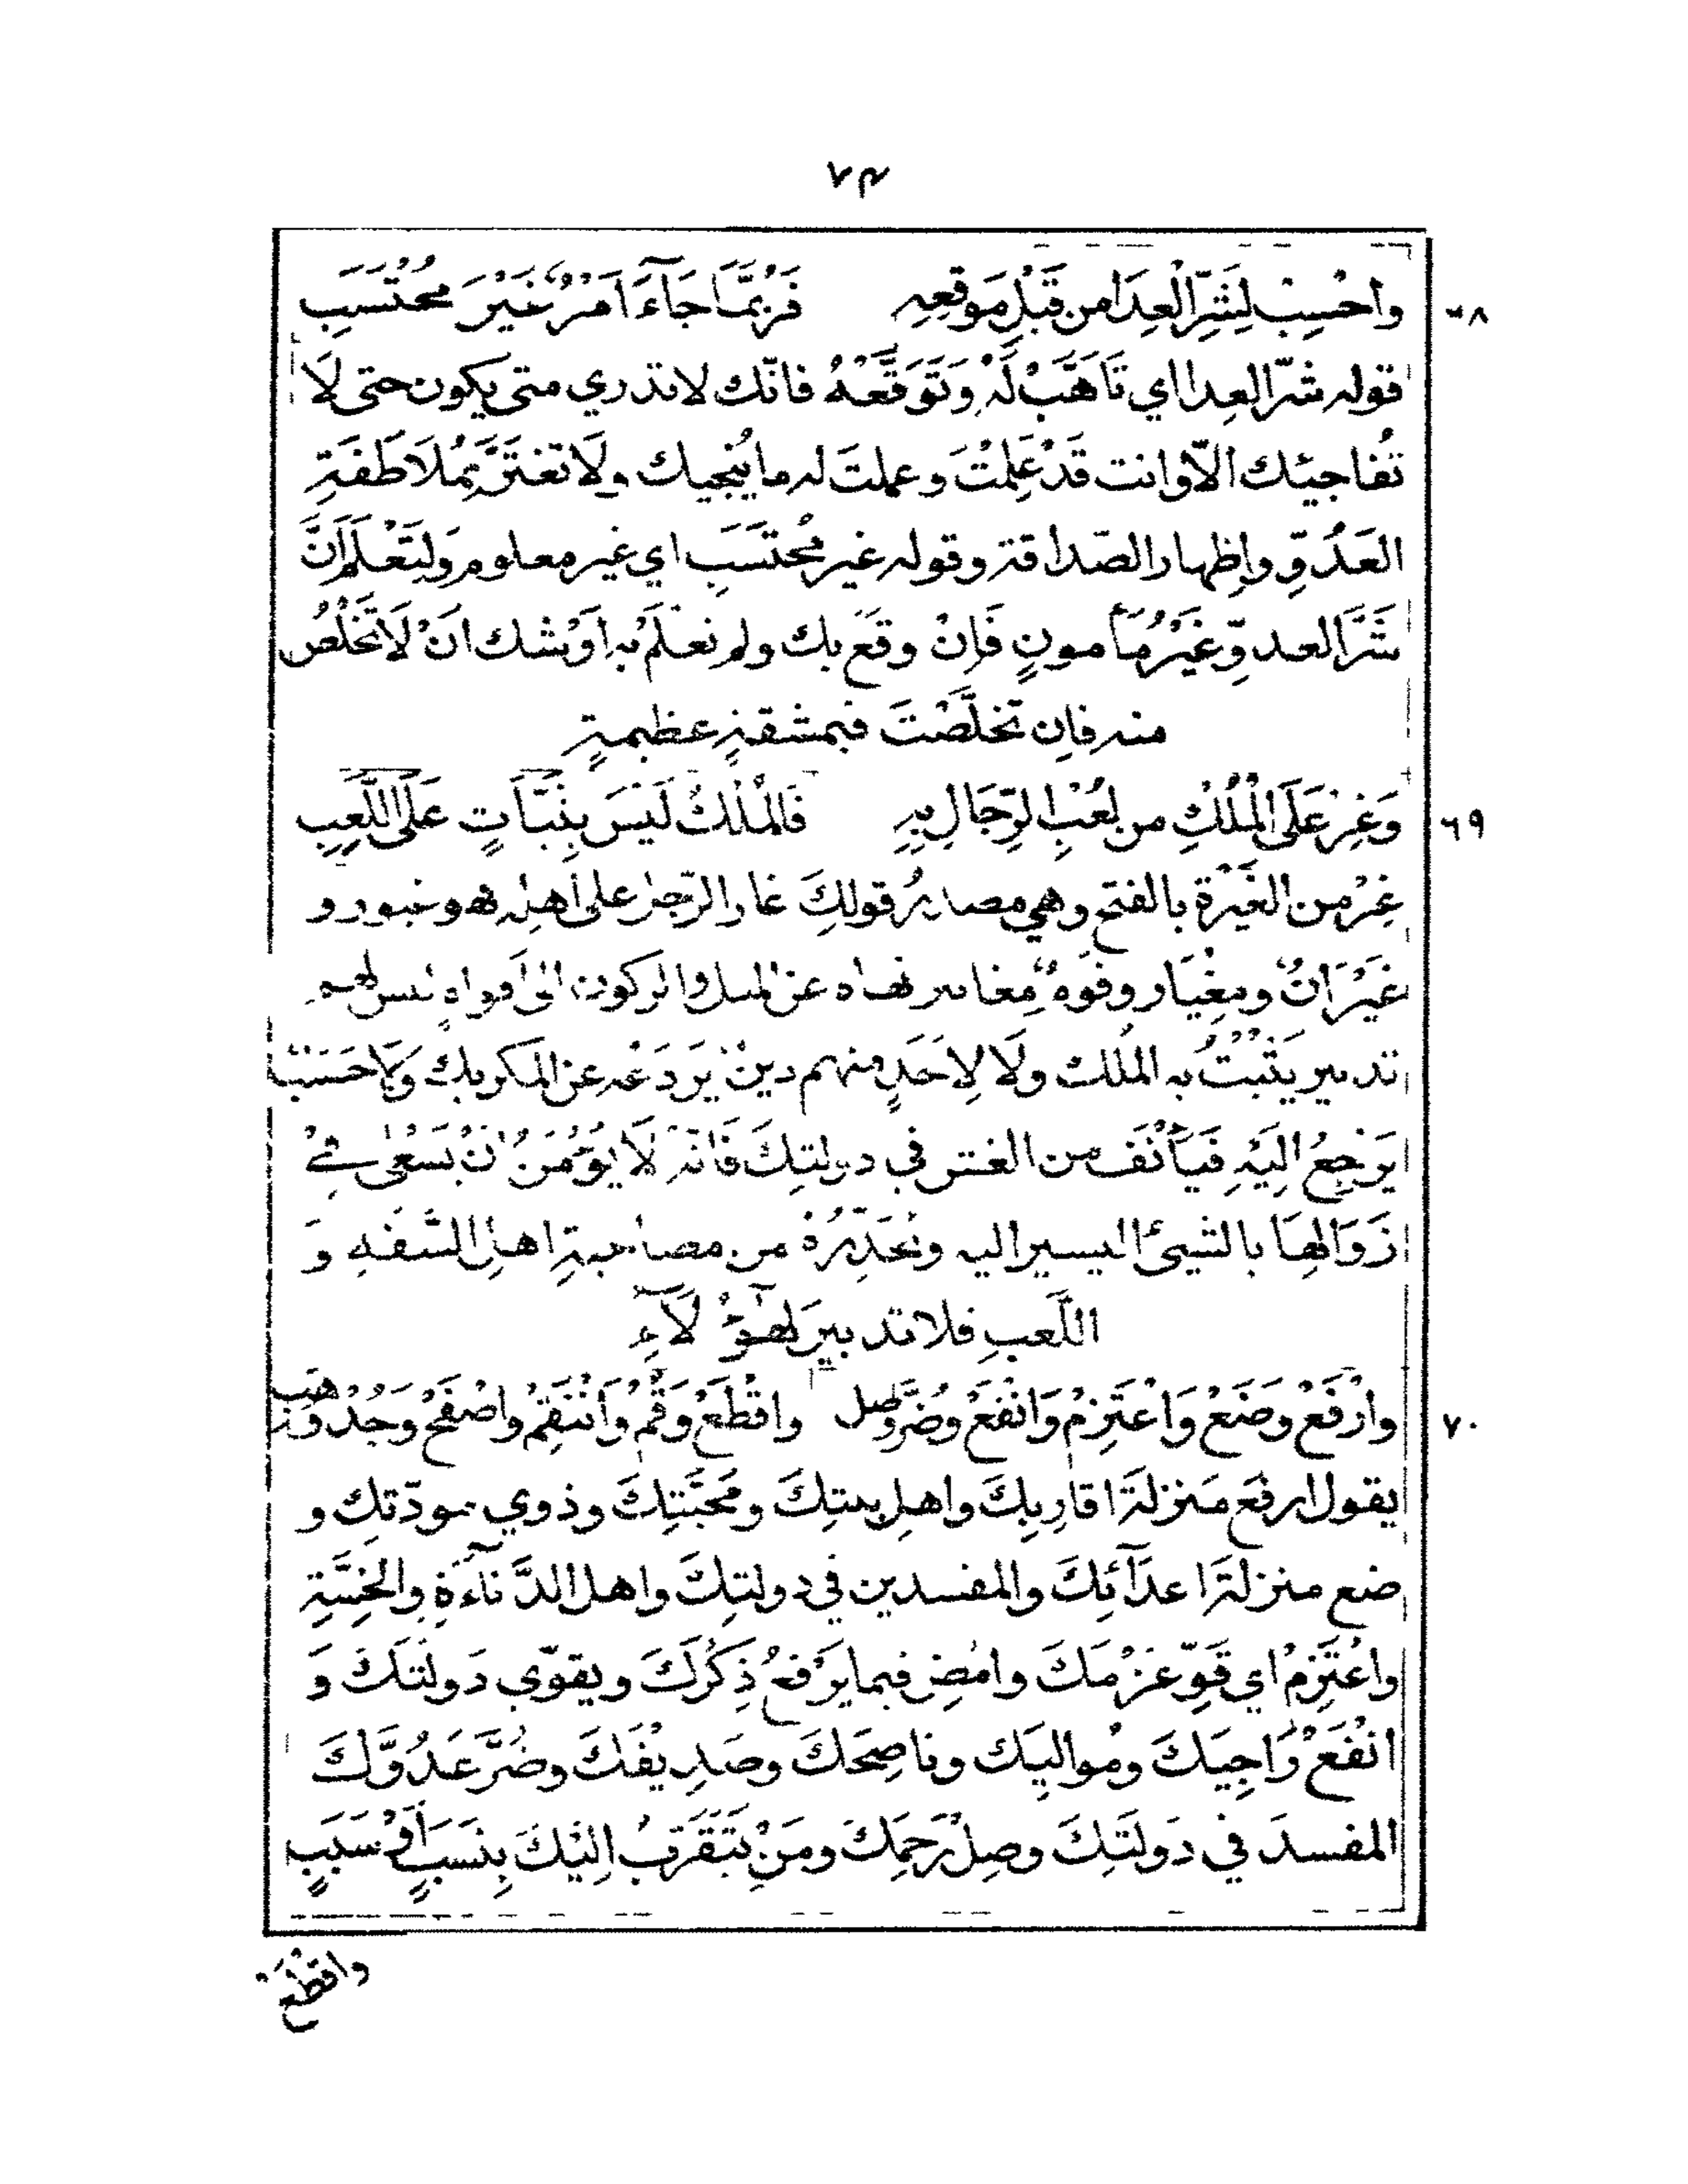 ٧٤
٦٨ واحْسِبْ لِشَرِّ العِدَا من قَبْلِ مَوقعِهِ فَرُبَّمَا جَاءَ اَمْرٌ غَيْرَ مُحْتَسَبِ
قوله شرّ العِدا اي تَاَهَّبْ لَهُ وَتَوَقَّعْهُ فانّك لا تدري متى يكون حتى لَا
تُفاجيئك الّا وانت قَدْ عَلِمْتَ وعملتَ له ما يُنجيك ولَا تغتَرَّ بِمُلَاطَفَةِ
العَدُوِّ وإظهار الصّداقة وقوله غير مُحتَسَبِ اي غير معلوم وَلِتَعْلَمْ اَنَّ
شَرَّ العدوِّ غَيْرُ مَأمونٍ فَاِنْ وقَعَ بك ولم تعْلَمْ به اَوْشك انْ لَا تَخْلُصُ
منه فاِن تخلَّصْتَ فبمشقةٍ عظيمةٍ
٦٩ وَغِرْ عَلَى الْمُلْكِ من لعْبِ الرِّجَالِ بِهِ فَالْمُلْكُ لَيْسَ بِثَبَّاتٍ عَلَى اللَّعِبِ
غِرْ من الغَيْرَة بالفتح وهي مصدرُ قولكَ غار الرّجل على اهلِه فهو غيور و
غَيْرَانُ ومِغْيَار وقومٌ مغايير نهاه عن الميل والركون الى اَقواهٍ ليس لهم
تدبير يَثْبُتُ به المُلك ولَا لِاَحَدٍ منهم دينٌ يَرْدَعُه عن المكر بك وَلَا حَسَبٌ
يَرْجِعُ اِلَيْهِ فَيَأنَف من الغش في دولتِكَ فَانّه لَا يُؤمَنُ ان يَسْعٰى في
زَوَالِهَا بالشيئ اليسير اليه ونُحَذِّرُهُ من مصاحبةِ اهلِ السَّفَهِ وَ
اللَّعبِ فلا تدبيرَ لهؤُلَآءِ
٧٠ وارْفَعْ وضَعْ وَاعْتَزِمْ وَانْفَعْ وضُرَّ وصل واقْطَعْ وَقُمْ وَانْتَقِمْ واصْفَحْ وَجُدْ وهَبِ
يقول ارفع مَنزلةَ اقارِبِكَ واهلِ بيتِكَ ومَحَبَّتِكَ وذوي مودّتِك و
ضع منزلةَ اعدَآئِكَ والمفسدين في دولتِكَ واهل الدَّنآءَةِ والخِسَّةِ
واعْتَزِمْ اي قَوِّ عَزْمَكَ وامْضِ فيما يَرْفعُ ذِكْرَكَ ويقوّي دَولتَكَ وَ
انْفَعْ رَاجِيَكَ ومُواليَك وناصِحَكَ وصَدِيقَكَ وضُرَّ عَدُوَّكَ
المفسدَ في دَولَتِكَ وصِلْ رَحِمَكَ ومَنْ يَتَقَرَّبُ اِلَيْكَ بِنَسَبٍ اَوْ سَبَبٍ
واقْطَعْ